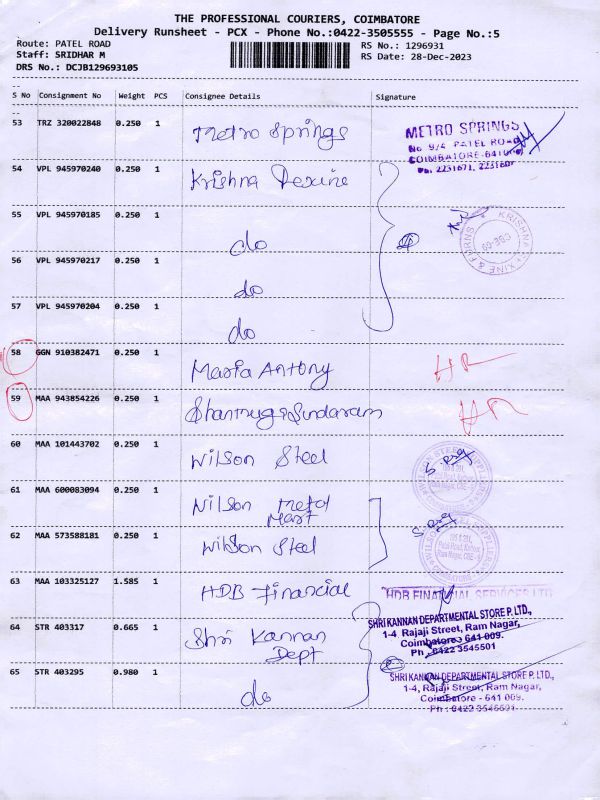 THE PROFESSIONAL COURIERS, COIMBATORE
Delivery Runsheet - PCX - Phone No.:0422-3505555 - Page No.:5
Route: PATEL ROAD
RS No.: 1296931
Staff: SRIDHAR M
RS Date: 28-Dec-2023
DRS No.: DCJB129693105
S No Consignment No Weight PCS Consignee Details Signature
53 TRZ 320022848 0.250 1 Metro Springs
METRO SPRINGS
No 9/4 PATEL ROAD
COIMBATORE-641009
Ph: 2231671,
54 VPL 945970240 0.250 1 Krishna Rexine
55 VPL 945970185 0.250 1 do
KRISHNA REXINE & FURNS
CBE-09
56 VPL 945970217 0.250 1 do
57 VPL 945970204 0.250 1 do
58 GGN 910382471 0.250 1 Maria Antony
59 MAA 943854226 0.250 1 Shanmuga Sundaram
60 MAA 101443702 0.250 1 Wilson Steel
61 MAA 600083094 0.250 1 Wilson Metal Mart
62 MAA 573588181 0.250 1 Wilson Steel
63 MAA 103325127 1.585 1 HDB Financial
HDB FINANCIAL SERVICES LTD
64 STR 403317 0.665 1 Shri Kannan Dept
SHRI KANNAN DEPARTMENTAL STORE P. LTD.,
1-4 Rajaji Street, Ram Nagar,
Coimbatore - 641 009.
Ph : 0422 3545501
65 STR 403295 0.980 1 do
SHRI KANNAN DEPARTMENTAL STORE P. LTD.,
1-4, Rajaji Street, Ram Nagar,
Coimbatore - 641 009.
Ph : 0422 3545501